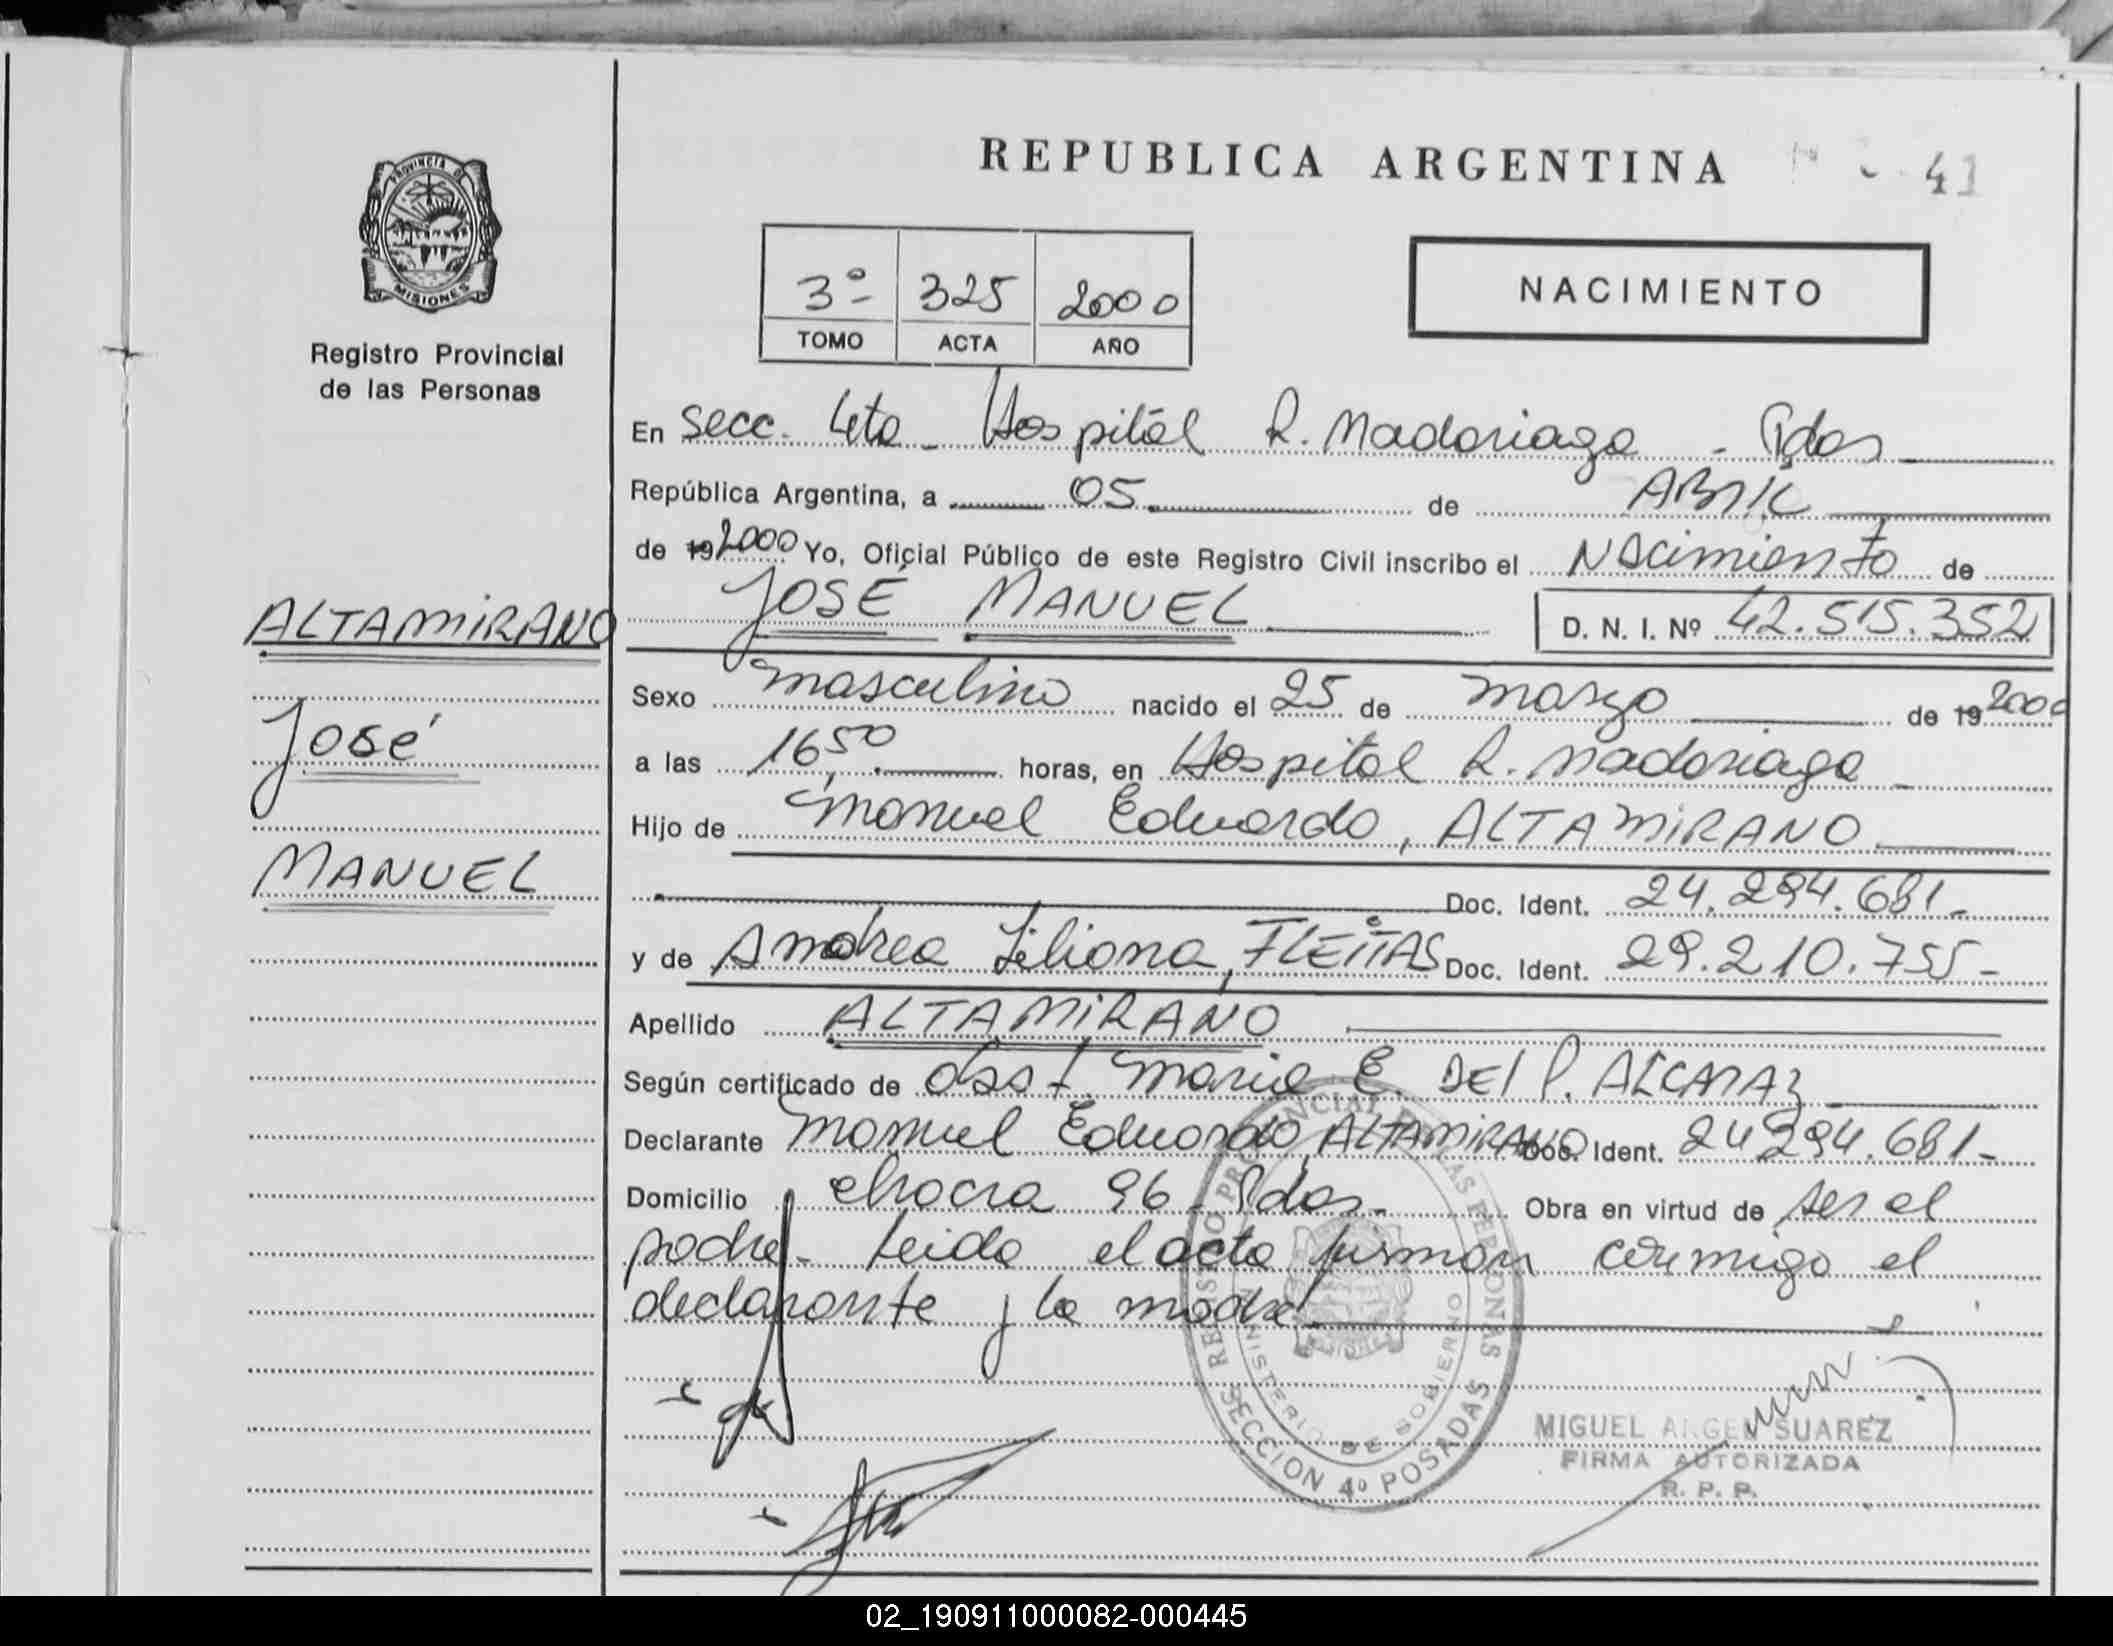 REPUBLICA ARGENTINA
41
PROVINCIA D
MISIONES
Registro Provincial
de las Personas
3º 325 2000
TOMO ACTA AÑO
NACIMIENTO
En Secc. 4ta - Hospital R. Madariaga - Pdas
República Argentina, a 05 de ABRIL
de 19 2000 Yo, Oficial Público de este Registro Civil inscribo el Nacimiento de
JOSÉ MANUEL D. N. I. Nº 42.515.352
ALTAMIRANO
José
MANUEL
Sexo masculino nacido el 25 de marzo de 19 2000
a las 16,50 horas, en Hospital R. Madariaga
Hijo de Manuel Eduardo, ALTAMIRANO
Doc. Ident. 24.294.681-
y de Andrea Liliana, FLEITAS Doc. Ident. 29.210.755-
Apellido ALTAMIRANO
Según certificado de Obst. Maria E. DEL P. ALCARAZ
Declarante Manuel Eduardo, ALTAMIRANO Doc. Ident. 24.294.681-
Domicilio chacra 96 - Pdas. - Obra en virtud de ser el
padre - Leida el acta firman conmigo el
declarante y la madre
REGISTRO PROVINCIAL DE LAS PERSONAS
MINISTERIO DE GOBIERNO
SECCION 4º POSADAS
MIGUEL ANGEL SUAREZ
FIRMA AUTORIZADA
R. P. P.
02_190911000082-000445